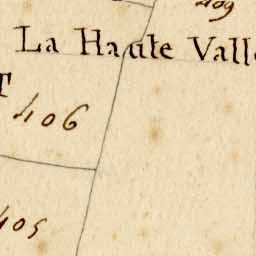 409
La Haute Vall
T
406
405